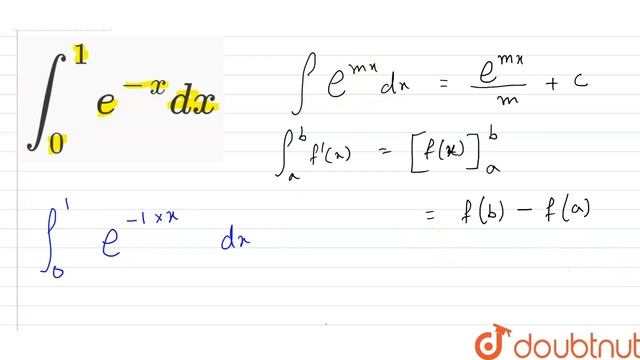 ∫₀¹ e⁻ˣ dx
∫ e^{mx} dx = e^{mx}/m + c
∫ₐᵇ f'(x) = [f(x)]ₐᵇ
= f(b) − f(a)
∫₀¹ e^{-1×x} dx
doubtnut